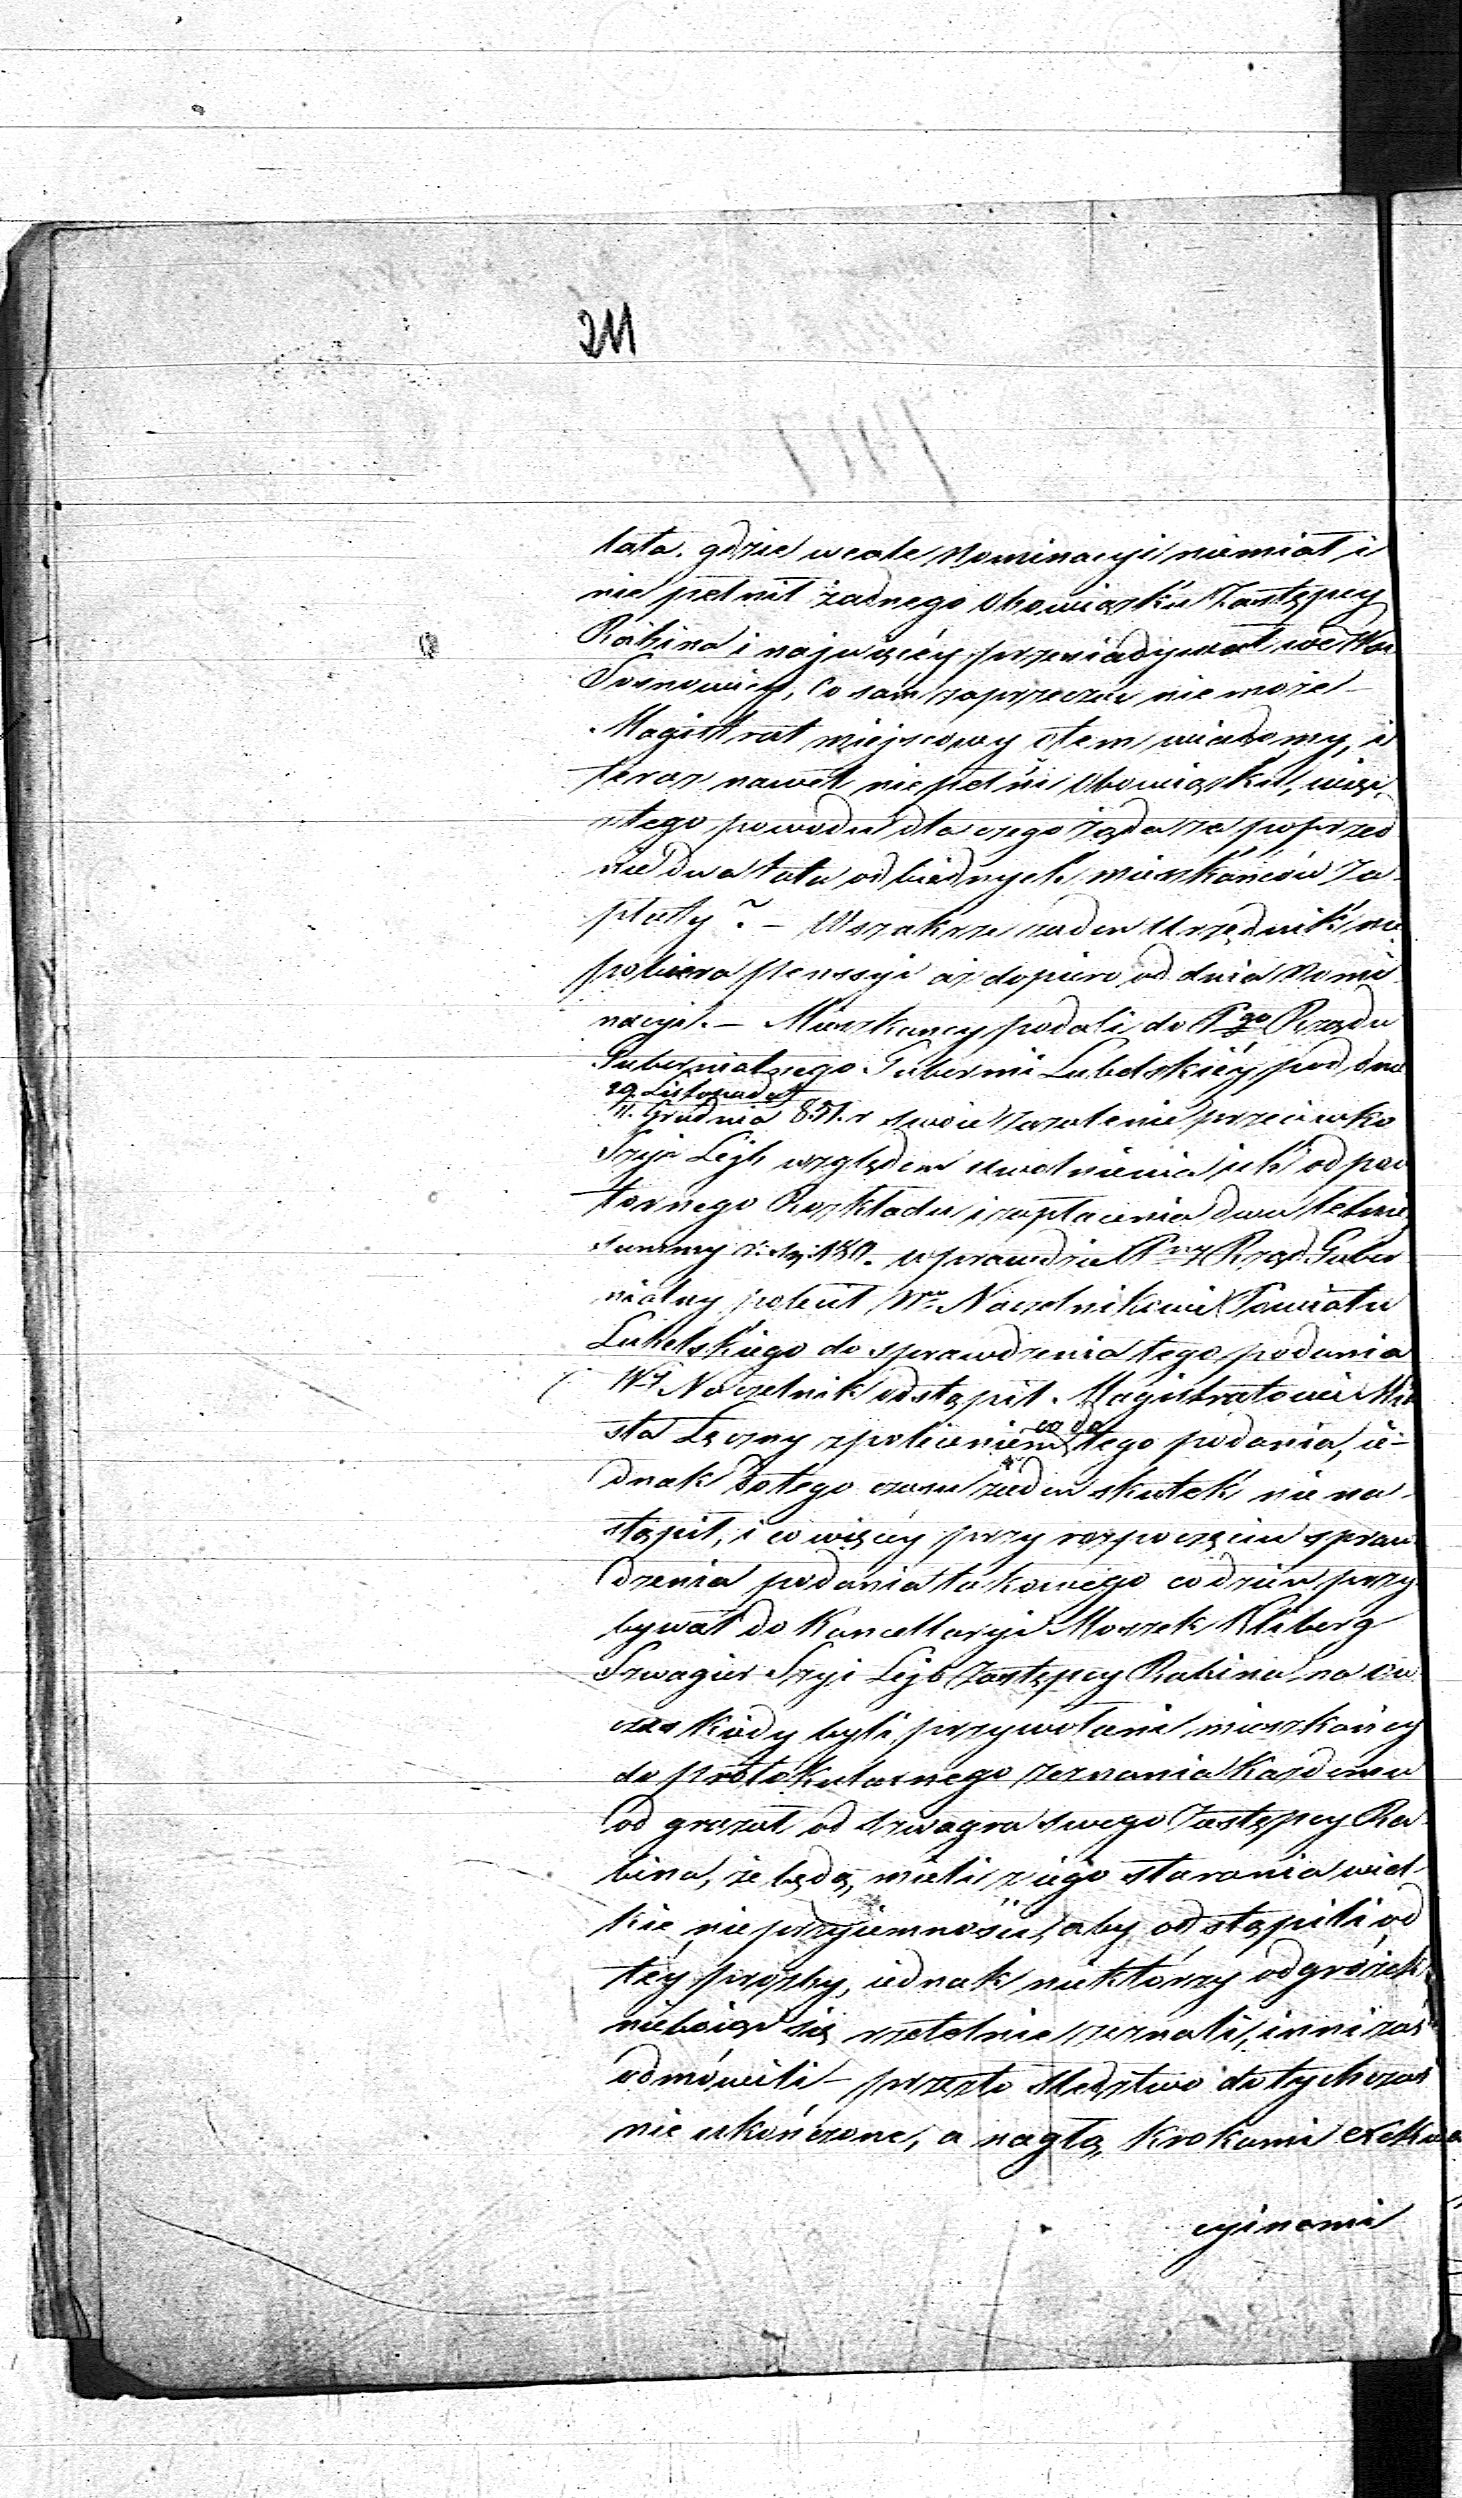 211
lata, gdzie wcale Nominacyi niemiał i
nie pełnił żadnego Obowiązku Zastępcy
Rabina i najwięcéy przesiadywał we Wsi
Sosnowicy, Co sam zaprzeczyć nie może –
Magistrat miejscowy otem wiadomy, i
teraz nawet niepełni Obowiązku, więc
ztego powodu dla czego żąda za poprzed
nie dwa lata od biednych mieszkańców za
płaty? – Wszakże żaden Urzędnik nie
pobiera pensyi aż dopiero od dnia Nomi
nacyi. – Mieszkancy podali do Rgo Rządu
Gubernialnego Gubernii Lubelskiéy pod dniem
29. Listopada
11. Grudnia 851. r swoie zażalenie przeciwko
Szyi Lejb względem uwolnienia ich od pow
tórnego Rozkładu i zapłacenia dwu letniéy
summy r. sr. 180. wprawdzie Rząd Guber
nialny polecił Wmu Naczelnikowi Powiatu
Lubelskiego do sprawdzenia tego podania
Wy Naczelnik odstąpił Magistratowi Mia
sta Łęczny zpoleceniem co do tego podania, ie-
dnak dotego czasu żaden skutek nie na
stąpił, i co więcéy przy rozpoczęciu spraw
dzenia podania takowego codzień przy
bywał do Kancellaryi Moszek Kliberg
Szwagier Szyi Lejb Zastępcy Rabina na ów
czas kiedy byli przywołani mieszkańcy
do protokularnego zeznania Każdemu
od grażał od szwagra swego Zastępcy Ra
bina, że będą mieli z iego starania wiel
kie nieprzyiemności, aby odstąpili od
téy prośby, iednak niektórzy odgróżek
nieboiąc się rzetelnie zeznali, inni zaś
odmówili – przeto śledztwo dotychczas
nie ukończone, a nagłą krokami exekucyi
cyinemi